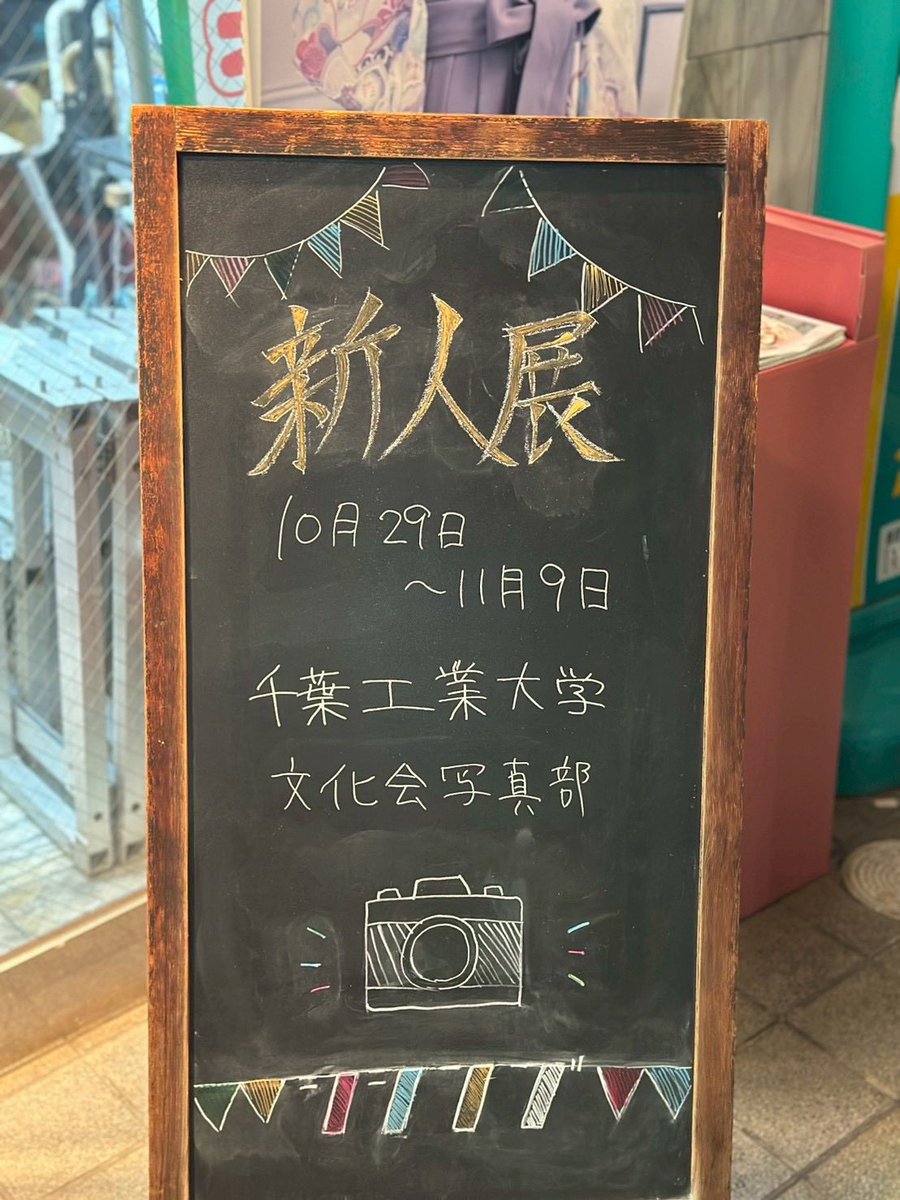 新人展
10月29日
～11月9日
千葉工業大学
文化会写真部